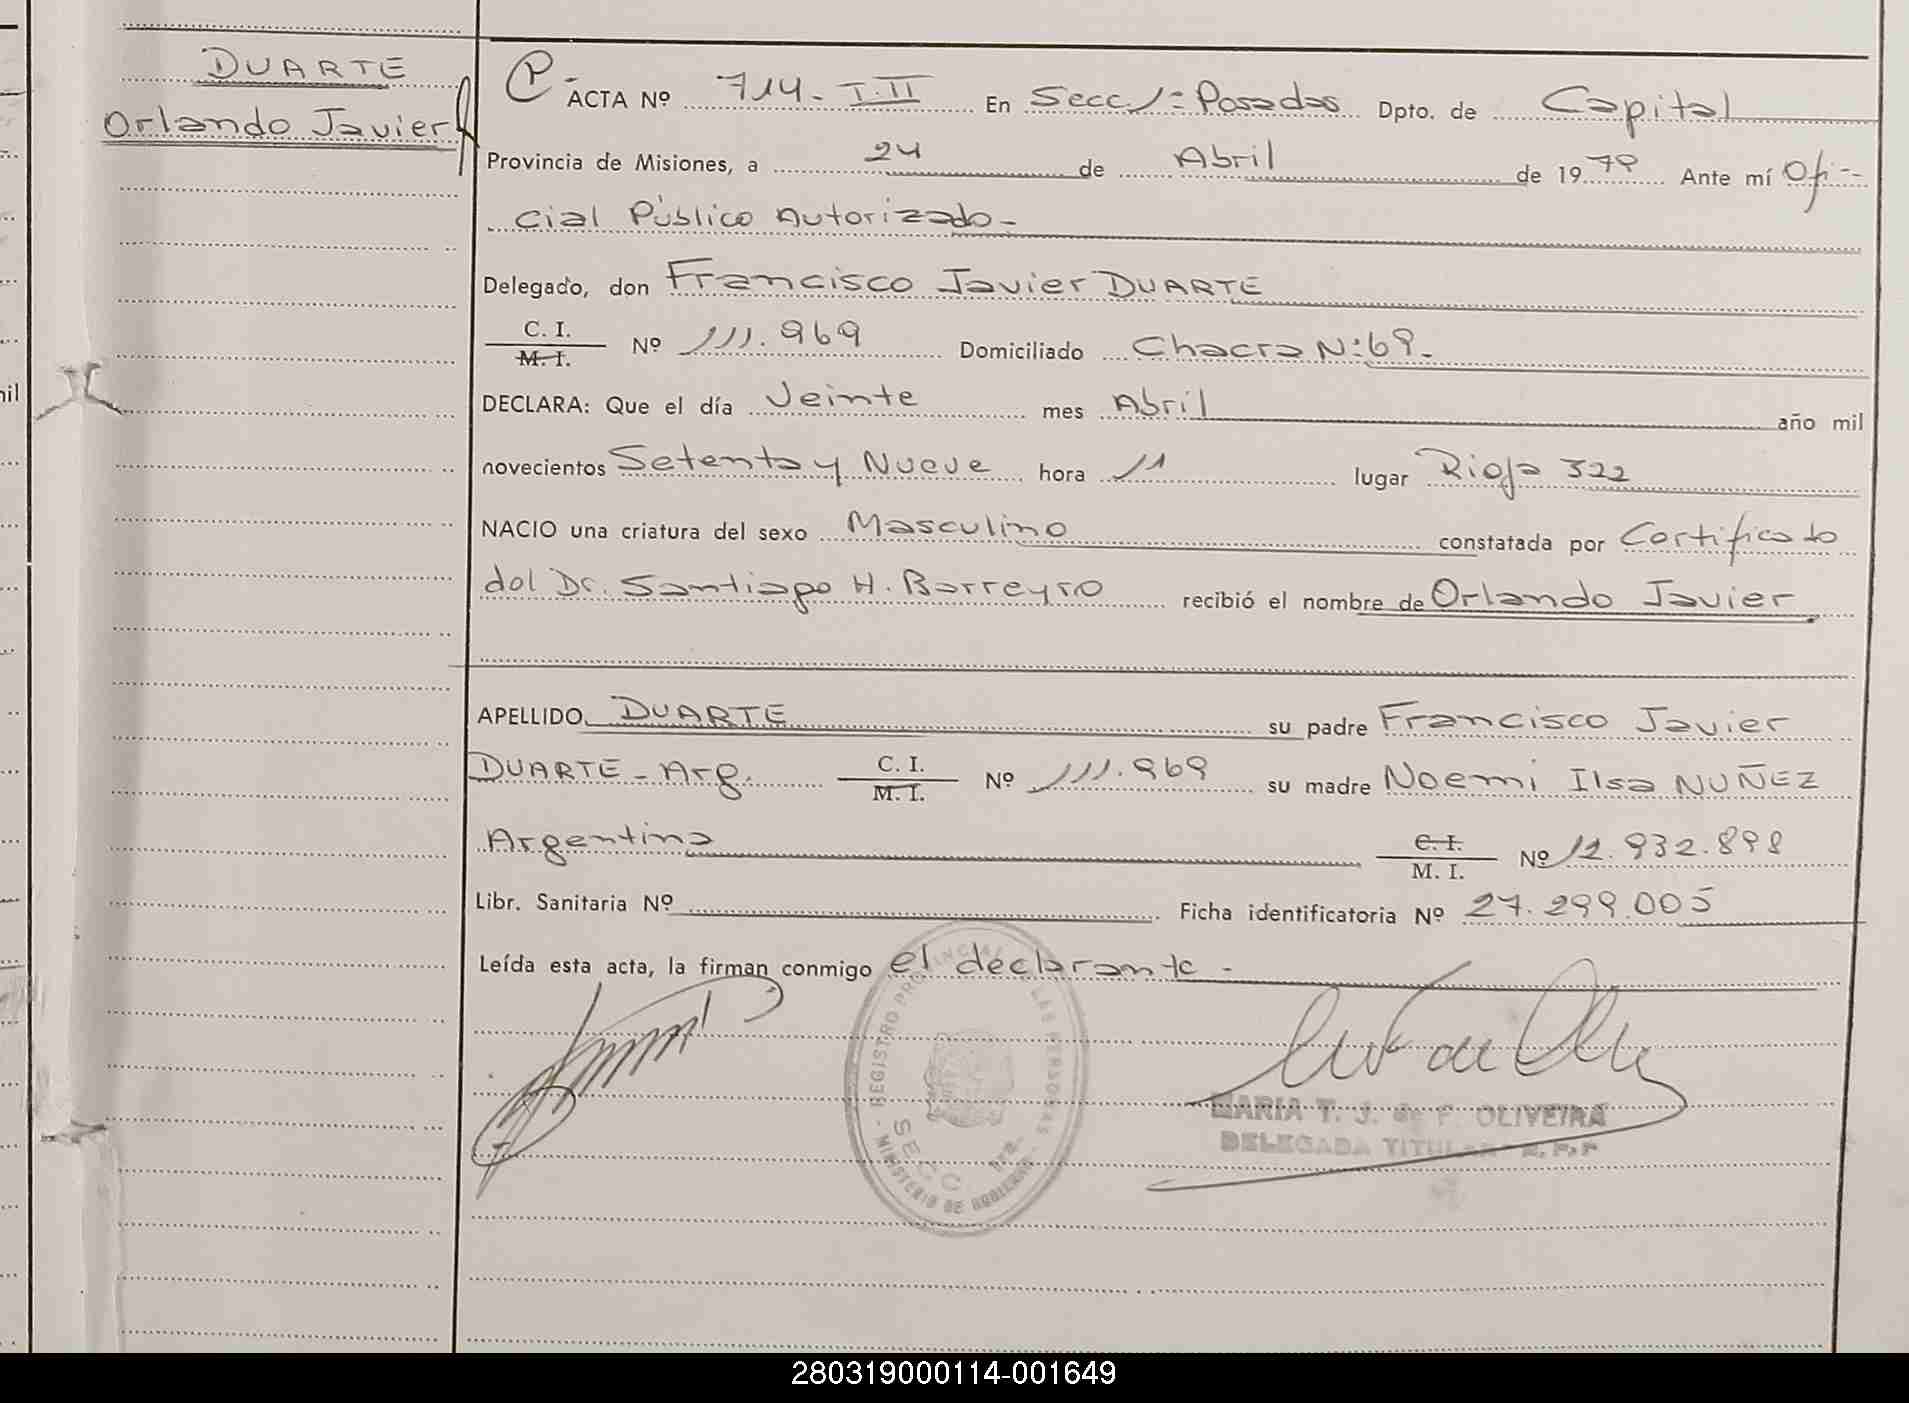 DUARTE
Orlando Javier
ACTA Nº 714 - T. II En Secc. 1ª Posadas Dpto. de Capital
Provincia de Misiones, a 24 de Abril de 1979 Ante mí Ofi-
cial Público Autorizado-
Delegado, don Francisco Javier DUARTE
C. I.
M. I.
Nº 111.969 Domiciliado Chacra Nº 69.-
DECLARA: Que el día Veinte mes Abril año mil
novecientos Setenta y Nueve hora 11 lugar Rioja 322
NACIO una criatura del sexo Masculino constatada por Certificado
del Dr. Santiago H. Barreyro recibió el nombre de Orlando Javier
APELLIDO DUARTE su padre Francisco Javier
DUARTE - Arg. C. I.
M. I.
Nº 111.969 su madre Noemi Ilsa NUÑEZ
Argentina C. I.
M. I.
Nº 12.932.898
Libr. Sanitaria Nº Ficha identificatoria Nº 27.299.005
Leída esta acta, la firman conmigo el declarante -
REGISTRO PROVINCIAL DE LAS PERSONAS
SECC 1ra.
MINISTERIO DE GOBIERNO
MARIA T. J. de F. OLIVEIRA
DELEGADA TITULAR
280319000114-001649
nil